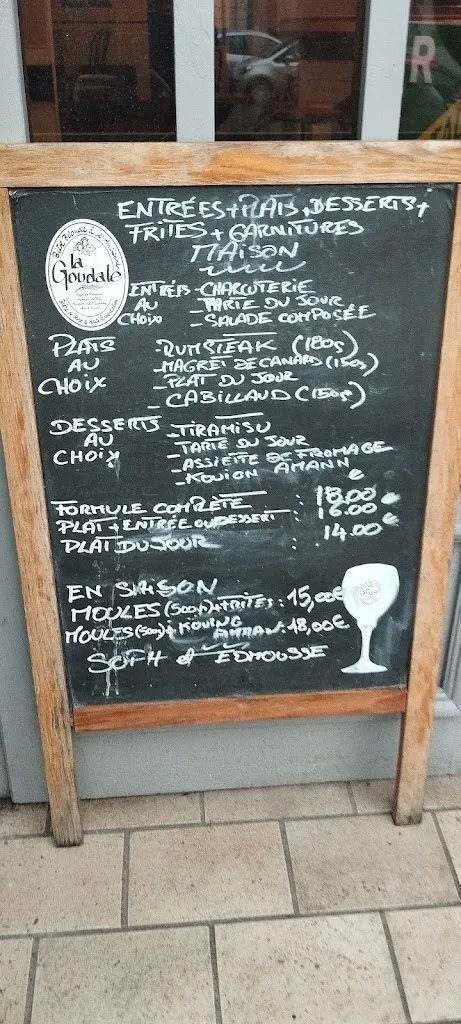 R
ENTRÉES+PLATS, DESSERTS+
FRITES + GARNITURES
MAISON
la
Goudale
ENTRÉES - CHARCUTERIE
AU - TARTE DU JOUR
CHOIX - SALADE COMPOSÉE
PLATS - RUMSTEAK (180g)
AU - MAGRET DE CANARD (150g)
CHOIX - PLAT DU JOUR
- CABILLAUD (150g)
DESSERTS - TIRAMISU
AU - TARTE DU JOUR
CHOIX - ASSIETTE DE FROMAGE
- KOUION AMANN
FORMULE COMPLÈTE : 18.00 €
PLAT + ENTRÉE OU DESSERT : 16.00 €
PLAT DU JOUR : 14.00 €
EN SAISON
MOULES (500gr) + FRITES : 15,00€
MOULES (500g) + KOUING
AMMAN : 18,00€
SOPH et EDMOUSSE